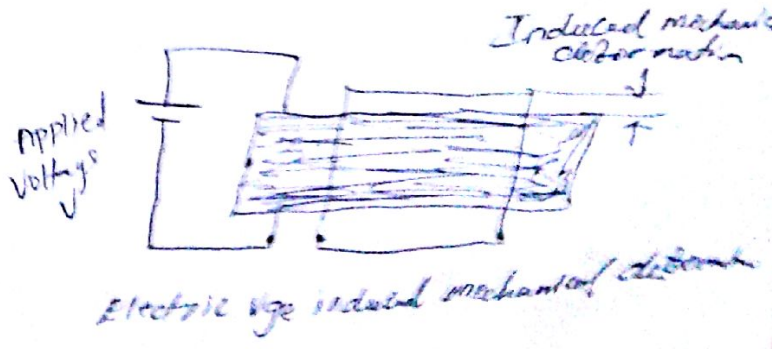 Induced mechanic
deformation
Applied
voltage
V
Electric vge induced mechanical deformation